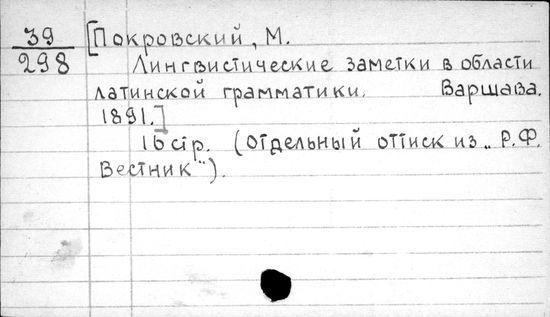 39
298
[Покровский, М.
Лингвистические заметки в области
латинской грамматики. Варшава.
1891.]
16 стр. (Отдельный оттиск из „Р.Ф.
Вестник").